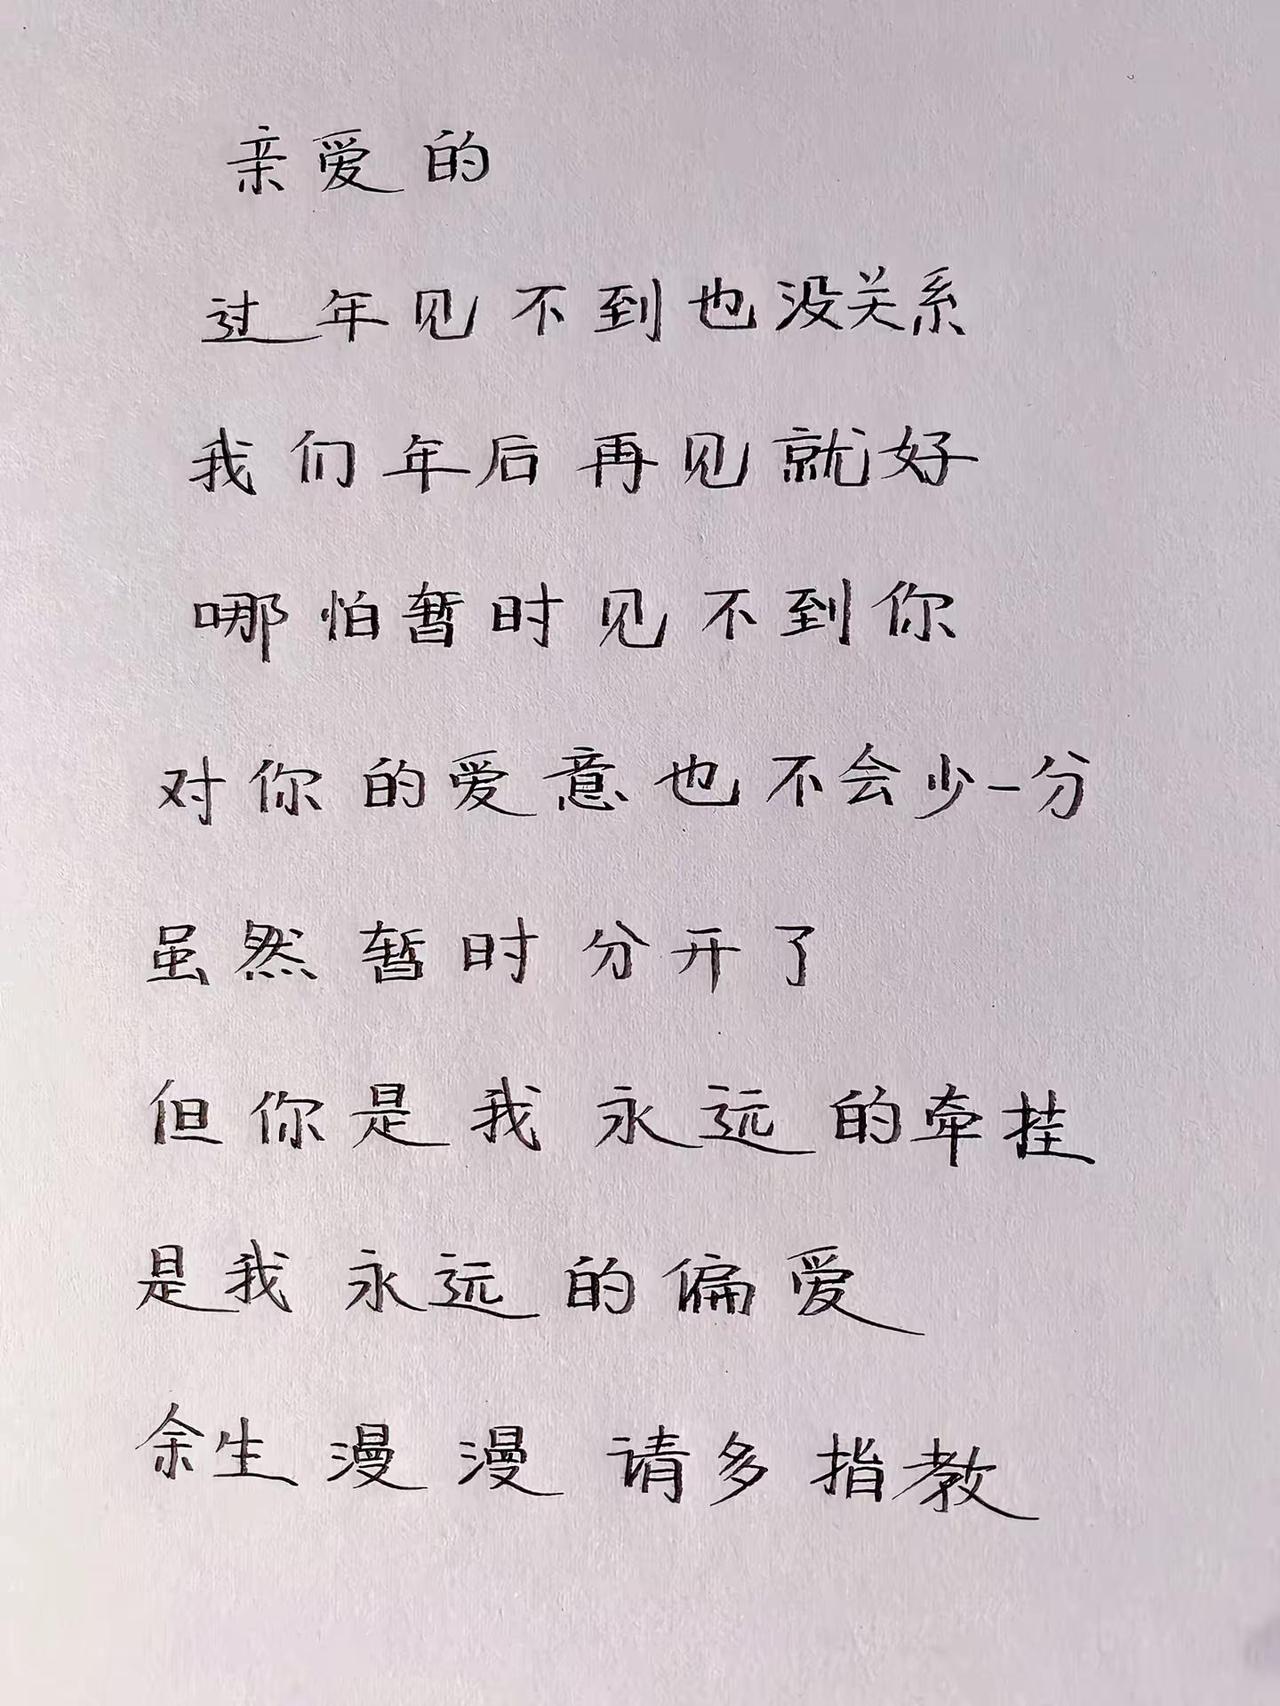 亲爱的
过年见不到也没关系
我们年后再见就好
哪怕暂时见不到你
对你的爱意也不会少一分
虽然暂时分开了
但你是我永远的牵挂
是我永远的偏爱
余生漫漫 请多指教